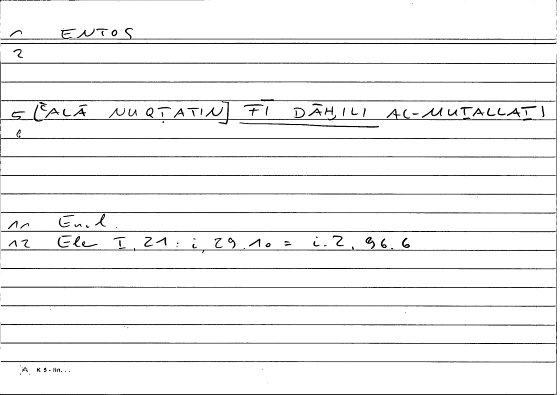 1 ENTOS
2
5 [ʿALĀ NUQṬATIN] FĪ DĀḪILI AL-MUṮALLAṮI
6
11 Eucl.
12 Ele I, 21 : i, 29.10 = i.2, 96.6
K 5 -